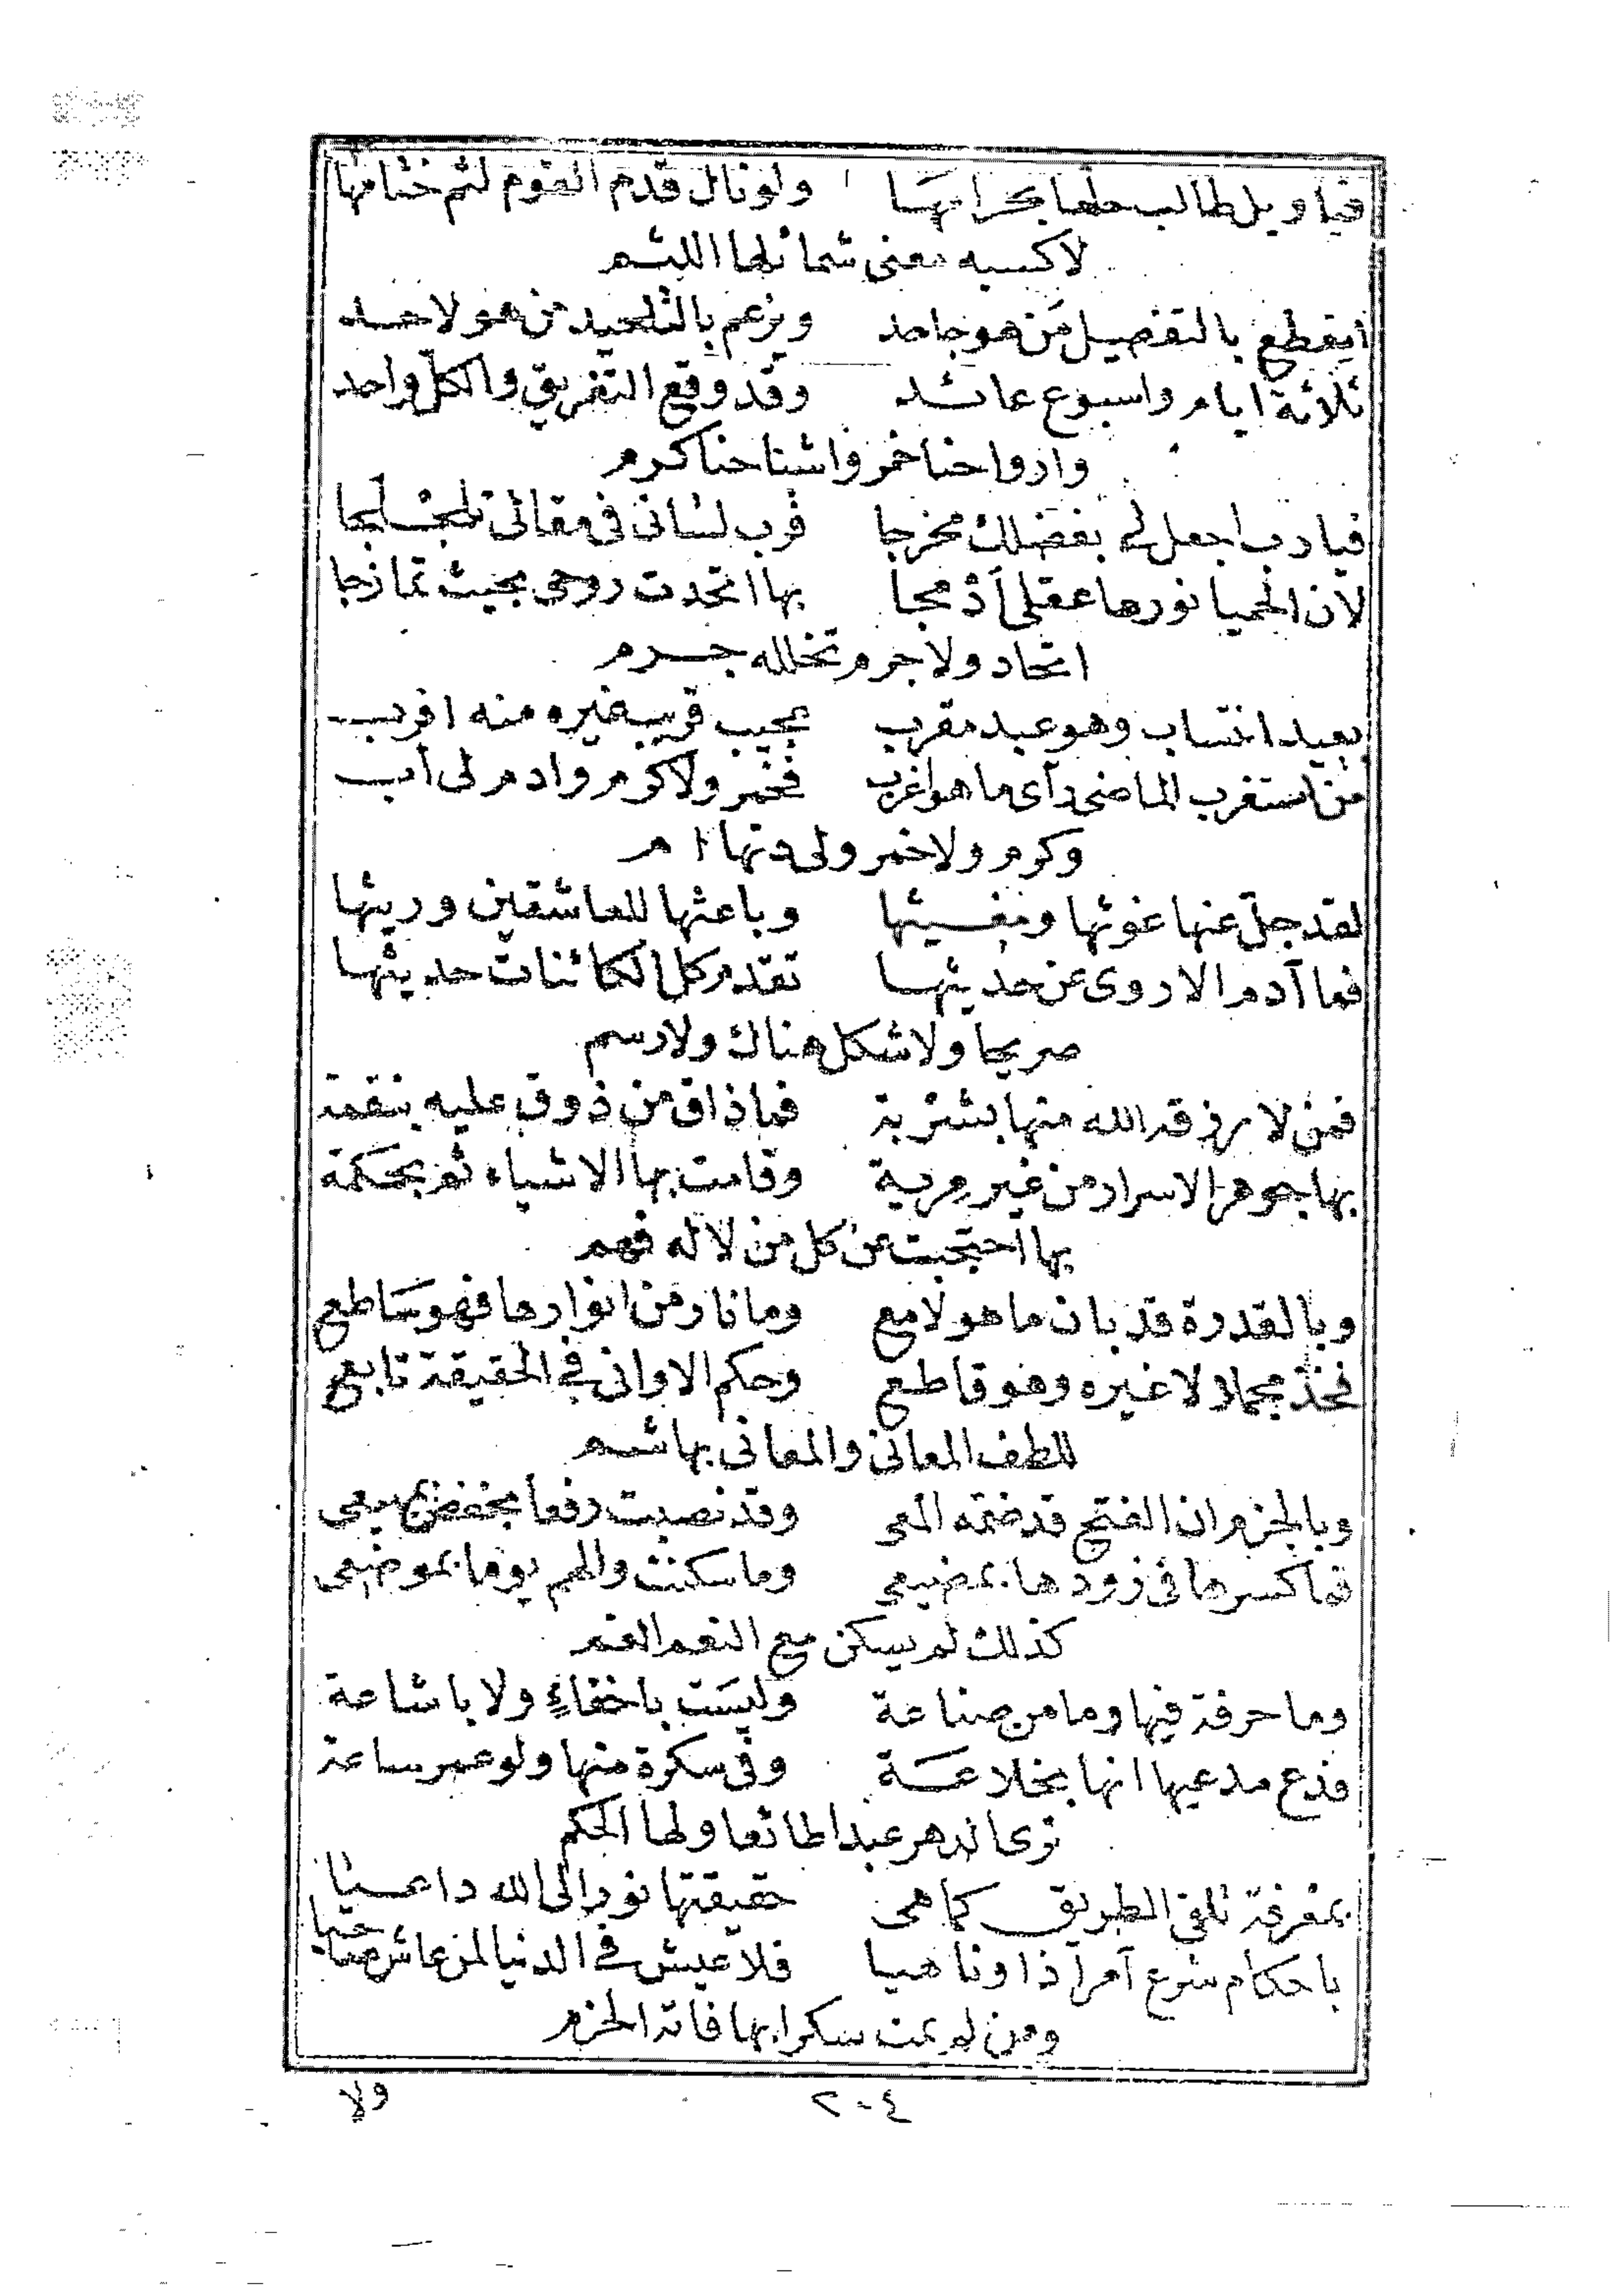 فيا ويل طالب طعما بحرامها ولو نال قدم القوم لثم ختامها
لاكسبه معنى شمائلها اللثم
ايقطع بالتفصيل من هو جاحد ويزعم بالتلحيد من هو لاحد
ثلاثة ايام واسبوع عائد وقد وقع التفريق والكل واحد
وارواحنا خمر واشباحنا كرم
فيا رب اجعل لي بفضلك مخرجا فرب لساني في مقالي تلجلجا
لان الحميا نورها عقلي أدمجا بها اتحدت روحي بحيث تمازجا
اتحاد ولا جرم تخلله جرم
بعيد انتساب وهو عبد مقرب عجيب قريب غيره منه اقرب
من استغرب الماضي رآى ما هو اغرب فخمر ولا كرم وادم لي أب
وكرم ولا خمر ولي دنها ام
لقد جل عنها غوثها ومغيثها وباعثها للعاشقين وريثها
فما آدم الا روى عن حديثها تقدم كل الكائنات حديثها
صريحا ولا شكل هناك ولا رسم
فمن لا رزقه الله منها بشربة فما ذاق من ذوق عليه بنقمة
بها جوهر الاسرار من غير مرية وقامت بها الاشياء ثم بحكمة
بها احتجبت عن كل من لا له فهم
وبالقدرة قد بان ما هو لامع وما نار من انوارها فهو ساطع
فخذ مجملا لا غيره وهو قاطع وحكم الاواني في الحقيقة تابع
للطف المعاني والمعاني بها شم
وبالجزم ان الفتح قد ضمه المعي وقد نصبت رفعا بخفض
فما كسرها في زودها بمضيعي وما سكنت والهم يوما بموضعي
كذلك لم يسكن مع النعم الغم
وما حرفة فيها وما من صناعة وليست باخفاء ولا باشاعة
فدع مدعيها انها بخلاعة وفي سكرة منها ولو عمر ساعة
ترى الدهر عبدا طائعا ولها الحكم
بمعرفة تلقى الطريق كما هي حقيقتها نورا الى الله داعيا
باحكام شرع آمرا ذا وناهيا فلا عيش في الدنيا لمن عاش صاحيا
ومن لم يمت سكرا بها فاته الحزم
٢٠٤
ولا